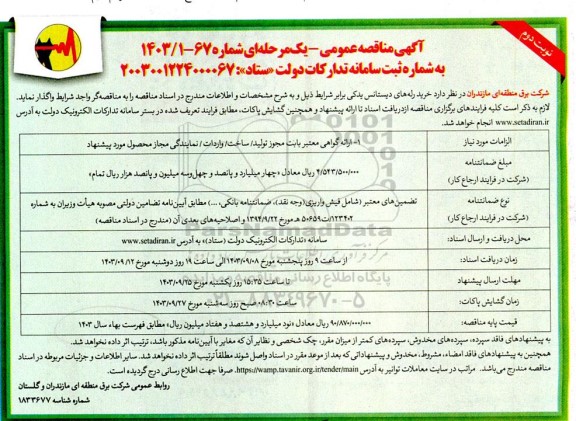 نوبت دوم
آگهی مناقصه عمومی – یک مرحله‌ای شماره ۶۷-۱۴۰۳/۱
به شماره ثبت سامانه تدارکات دولت «ستاد»: ۲۰۰۳۰۰۱۲۲۴۰۰۰۰۶۷
شرکت برق منطقه‌ای مازندران در نظر دارد خرید رله‌های دیستانس یدکی برابر شرایط ذیل و به شرح مشخصات و اطلاعات مندرج در اسناد مناقصه را به مناقصه‌گر واجد شرایط واگذار نماید.
لازم به ذکر است کلیه فرایندهای برگزاری مناقصه از دریافت اسناد تا ارائه پیشنهاد و همچنین گشایش پاکات، مطابق فرایند تعریف شده در بستر سامانه تدارکات الکترونیک دولت به آدرس
www.setadiran.ir انجام خواهد شد.
الزامات مورد نیاز
۱- ارائه گواهی معتبر بابت مجوز تولید/ ساخت/ واردات / نمایندگی مجاز محصول مورد پیشنهاد
مبلغ ضمانتنامه
(شرکت در فرایند ارجاع کار)
۴/۵۴۳/۵۰۰/۰۰۰ ریال معادل «چهار میلیارد و پانصد و چهل‌وسه میلیون و پانصد هزار ریال تمام»
نوع ضمانتنامه
(شرکت در فرایند ارجاع کار)
تضمین‌های معتبر (شامل فیش واریزی(وجه نقد)، ضمانتنامه بانکی، ...) مطابق آیین‌نامه تضامین دولتی مصوبه هیأت وزیران به شماره
۱۲۳۴۰۲/ت۵۰۶۵۹ هـ مورخ ۱۳۹۴/۹/۲۲ و اصلاحیه‌های بعدی آن (مندرج در اسناد مناقصه)
محل دریافت و ارسال اسناد:
سامانه «تدارکات الکترونیک دولت (ستاد)» به آدرس www.setadiran.ir
زمان دریافت اسناد:
از ساعت ۹ روز پنجشنبه مورخ ۱۴۰۳/۰۹/۰۸ الی ساعت ۱۹ روز دوشنبه مورخ ۱۴۰۳/۰۹/۱۲
مهلت ارسال پیشنهاد
تا ساعت ۱۵:۳۵ روز یکشنبه مورخ ۱۴۰۳/۰۹/۲۵
زمان گشایش پاکات:
ساعت ۰۸:۳۰ صبح روز سه‌شنبه مورخ ۱۴۰۳/۰۹/۲۷
قیمت پایه مناقصه:
۹۰/۸۷۰/۰۰۰/۰۰۰ ریال معادل «نود میلیارد و هشتصد و هفتاد میلیون ریال» مطابق فهرست بهاء سال ۱۴۰۳
به پیشنهادهای فاقد سپرده، سپرده‌های مخدوش، سپرده‌های کمتر از میزان مقرر، چک شخصی و نظایر آن که مغایر با آیین‌نامه مذکور باشد، ترتیب اثر داده نخواهد شد.
همچنین به پیشنهادهای فاقد امضاء، مشروط، مخدوش و پیشنهاداتی که بعد از موعد مقرر در اسناد واصل شوند مطلقاً ترتیب اثر داده نخواهد شد. سایر اطلاعات و جزئیات مربوطه در اسناد
مناقصه مندرج می‌باشد. مراتب در سایت معاملات توانیر به آدرس https://wamp.tavanir.org.ir/tender/main، صرفا جهت اطلاع رسانی درج گردیده است.
روابط عمومی شرکت برق منطقه ای مازندران و گلستان
شماره شناسه ۱۸۳۳۶۷۷
ParsNamadData